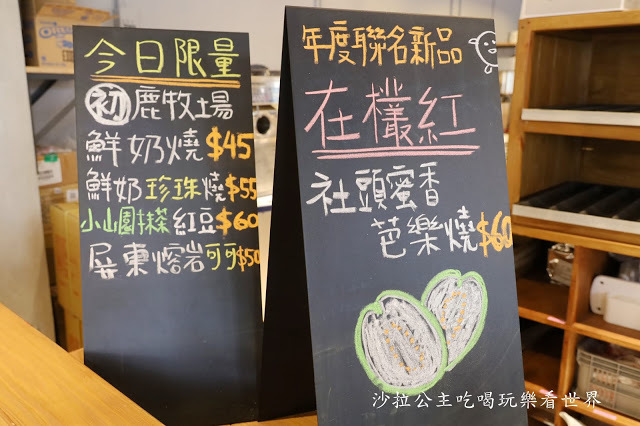 今日限量
初鹿牧場
鮮奶燒$45
鮮奶珍珠燒$55
小山園抹茶紅豆$60
屏東熔岩可可$50
年度聯名新品
在欉紅
社頭蜜香
芭樂燒$60
沙拉公主吃喝玩樂看世界